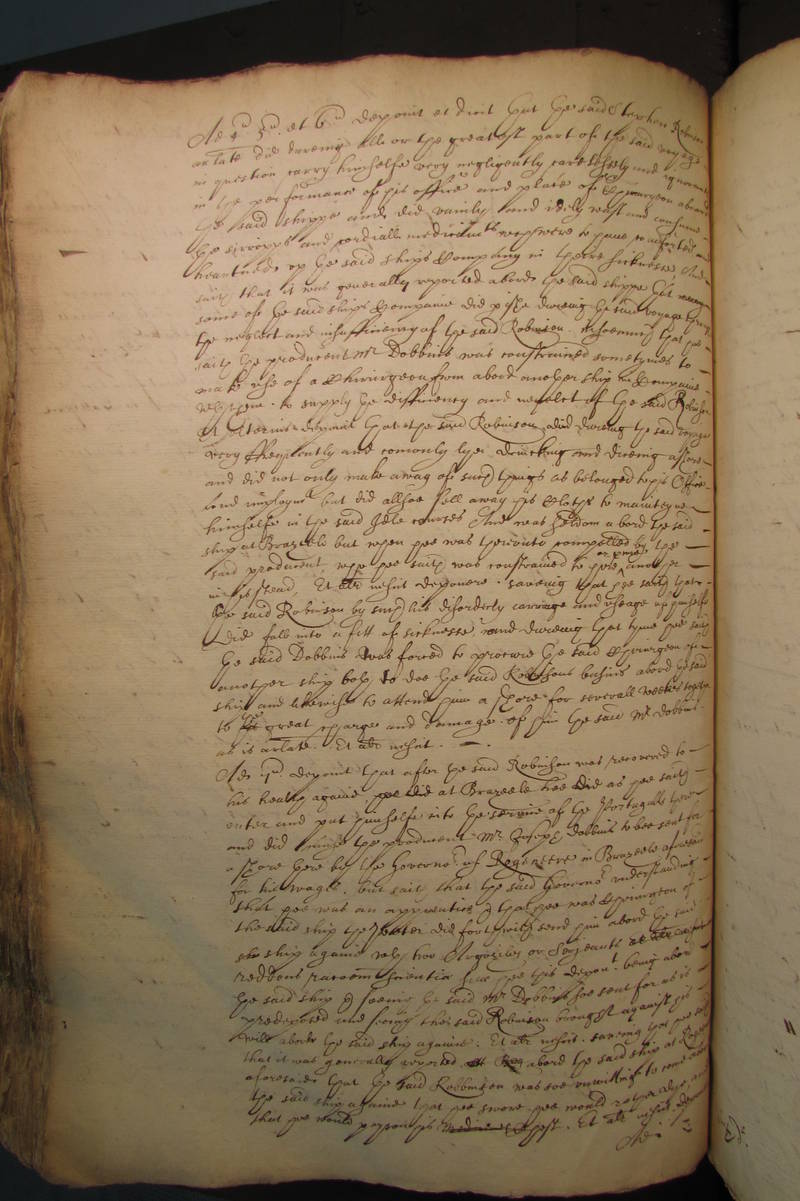 Ad 4m 5m et 6m deponit et dicit that the said Stephen Robinson
arlate did dureing all or the greatest part of the said voyage
in question carry himselfe very negligently carelessly and ignorantly
in the performance of his office and place of Chirurgeon aboard
the said shippe and did vainly and idely wast and consume
the sirropps and cordiall medicines were to have comforted and
of the said ships Company in theire sicknesse. And
saith that it was generally reported aboard the said shippe that
some of the said ships Companie did perishe dureing the said voyage through
the neglect and insufficiency of the said Robinson. that hee
saith the producent Mr Dobbins was constrained sometymes to
make use of a Chirurgeon from abord another ship in Companie
to supply the difficiency and neglect of the said Robinson
Et ulterius deponit that the said Robinson did dureing the said voyage
very frequently and comonly lye drincking and dicing ashore
and did not only make away of such things as belonged to his Office
but did allsoe sell away his Cloths to mainteyne
himselfe in the said Idle courses And was seldom abord the said
ship at Brazeele but when hee was therunto compelled by the
said producent, who hee saith was constrained to hire another
in his stead, Et aliter nescit deponere. saveing that hee saith that
the said Robinson by such his disorderly carriage and useage of himselfe
did fall into a fitt of sicknesse and dureing that tyme hee saith
the said Dobbins was forced to procure the said Chirurgeon of
another ship both to doe the said Robinsons busines abord the said
ship and likewise to attend him a shore for severall weekes together
to the great charge and damage of him the said Mr Dobbins
as is arlate. Et aliter nescit.
Ad 7m deponit that after the said Robinson was recovered to
his health againe hee did at Brazeele as hee saith
enter and put himselfe into the service of the Portugalls there
and did cause the producent Mr Joseph Dobbins to bee sent for
a shore there by the Governor of in Brazeele aforesaid
for his wages. but saith that the said Governor understanding
that hee was an apprentice & that hee was Chirurgeon of
the said ship the did forthwith send him abord the said
ship againe with two or Serjeants
reddens racoem scientiae sua hee this deponent being abord
the said ship & seeing the said Mr Dobbins soe sent for as is
predeposed and seeing the said Robinson brought against his
will abord the said ship againe. Et aliter nescit. saveing that hee saith
that it was generally reported abord the said ship at
aforesaid that the said Robbinson was soe unwilling to come abord
the said ship againe that hee swore hee would rather dye, and
that hee would poyson his. Et aliter nescit
Ad